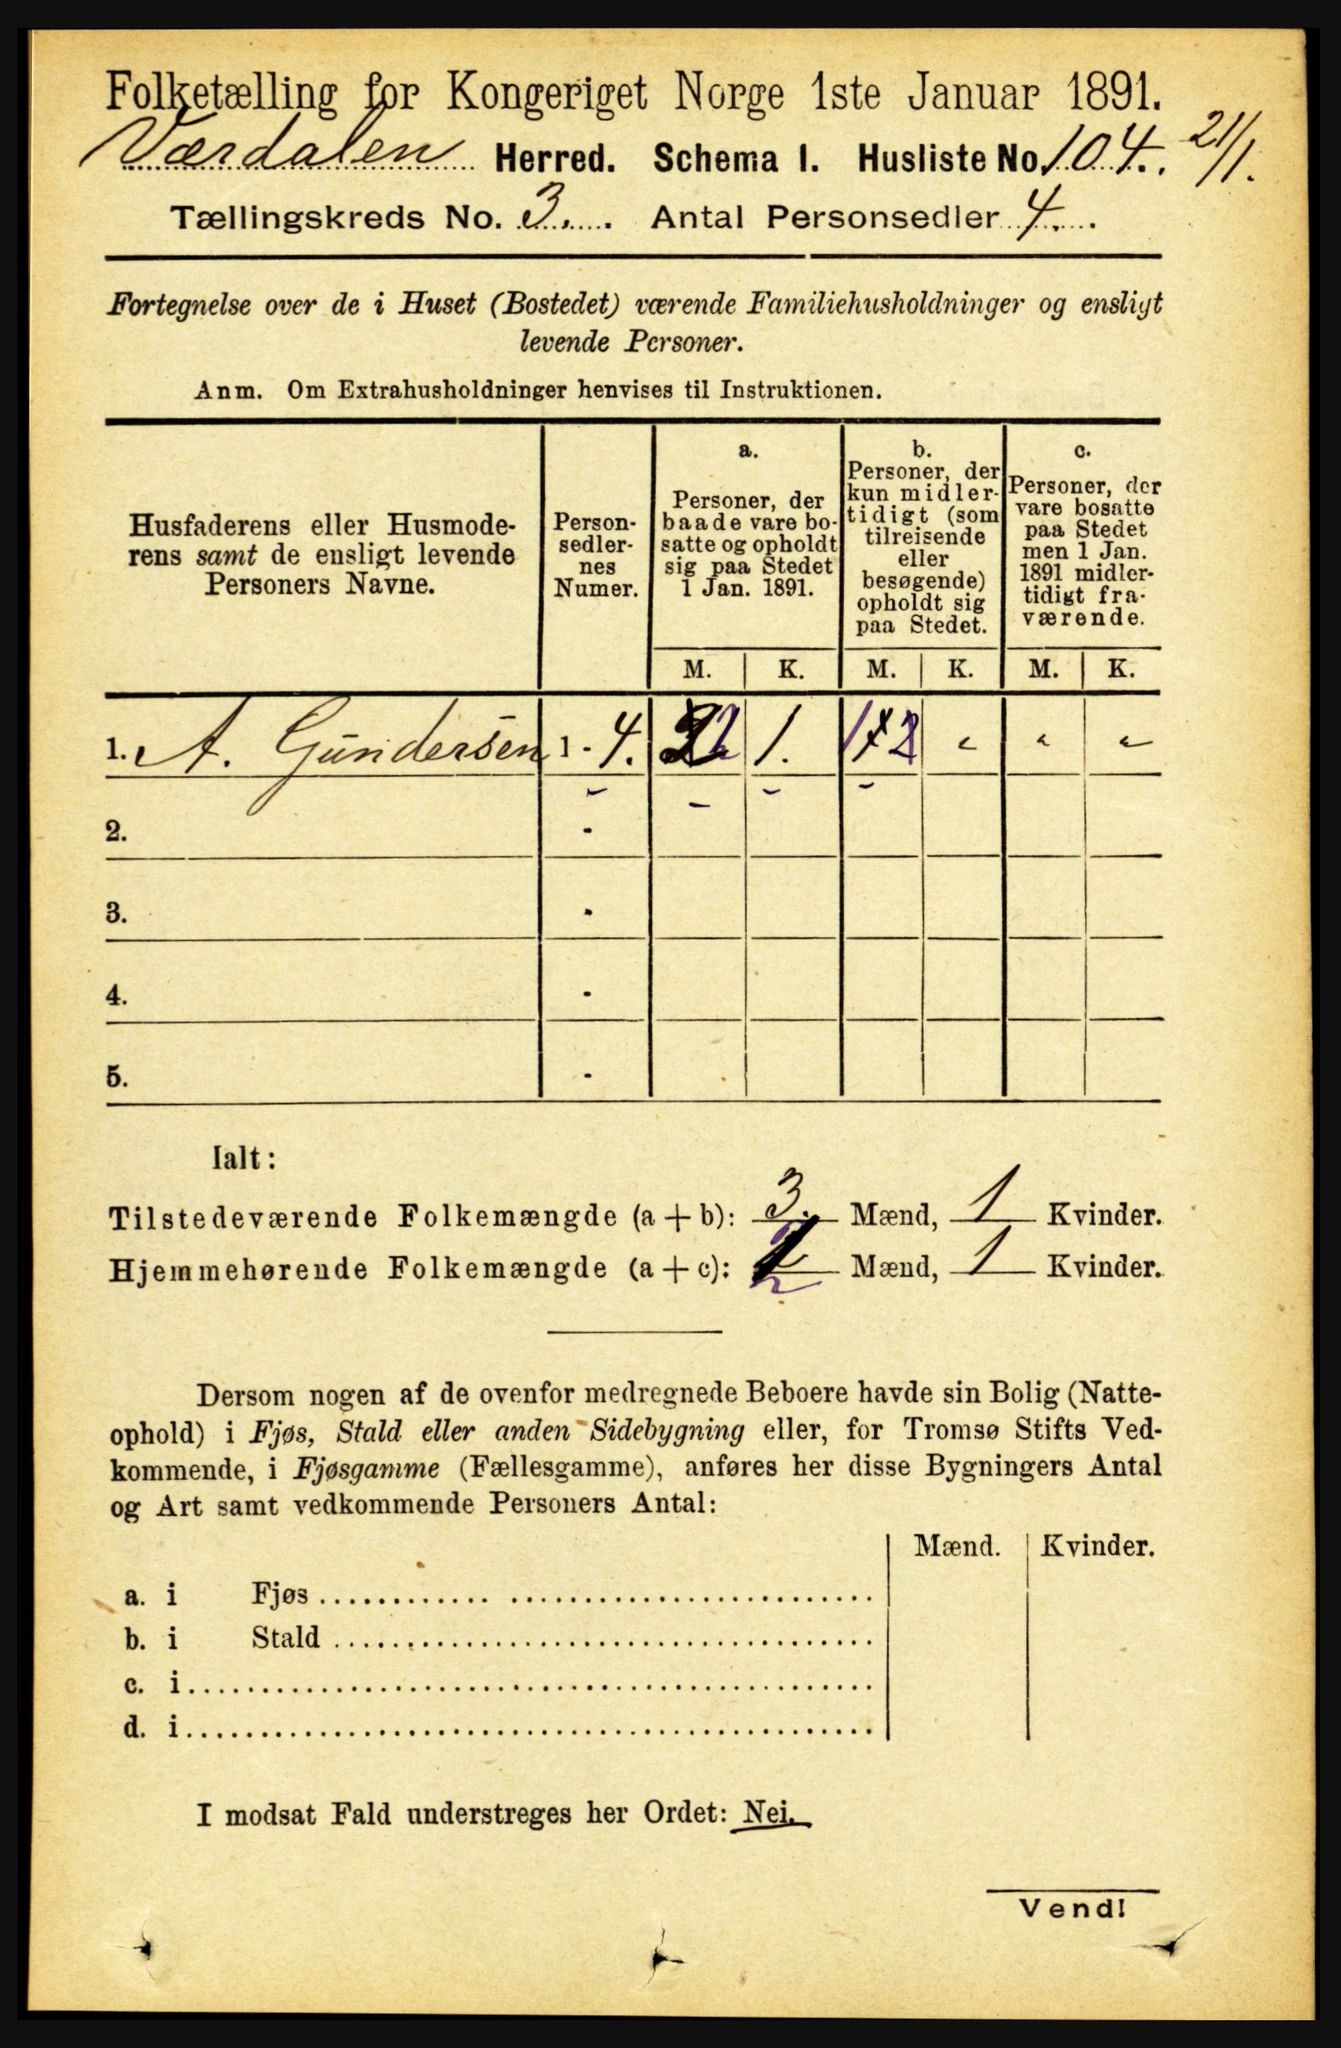 Folketælling for Kongeriget Norge 1ste Januar 1891.
Værdalen Herred. Schema I. Husliste No. 104. 21/1.
Tællingskreds No. 3. Antal Personsedler 4.
Fortegnelse over de i Huset (Bostedet) værende Familiehusholdninger og ensligt
levende Personer.
Anm. Om Extrahusholdninger henvises til Instruktionen.
Husfaderens eller Husmode-
rens samt de ensligt levende
Personers Navne.
Person-
sedler-
nes
Numer.
a.
Personer, der
baade vare bo-
satte og opholdt
sig paa Stedet
1 Jan. 1891.
b.
Personer, der
kun midler-
tidigt (som
tilreisende
eller
besøgende)
opholdt sig
paa Stedet.
c.
Personer, der
vare bosatte
paa Stedet
men 1 Jan.
1891 midler-
tidigt fra-
værende.
M. K. M. K. M. K.
1. A. Gundersen 1 - 4. 2 1. 1
2. -
3. -
4. -
5. -
Ialt:
Tilstedeværende Folkemængde (a + b): 3. Mænd, 1 Kvinder.
Hjemmehørende Folkemængde (a + c): 2 Mænd, 1 Kvinder.
Dersom nogen af de ovenfor medregnede Beboere havde sin Bolig (Natte-
ophold) i Fjøs, Stald eller anden Sidebygning eller, for Tromsø Stifts Ved-
kommende, i Fjøsgamme (Fællesgamme), anføres her disse Bygningers Antal
og Art samt vedkommende Personers Antal:
Mænd. Kvinder.
a. i Fjøs
b. i Stald
c. i
d. i
I modsat Fald understreges her Ordet: Nei.
Vend!